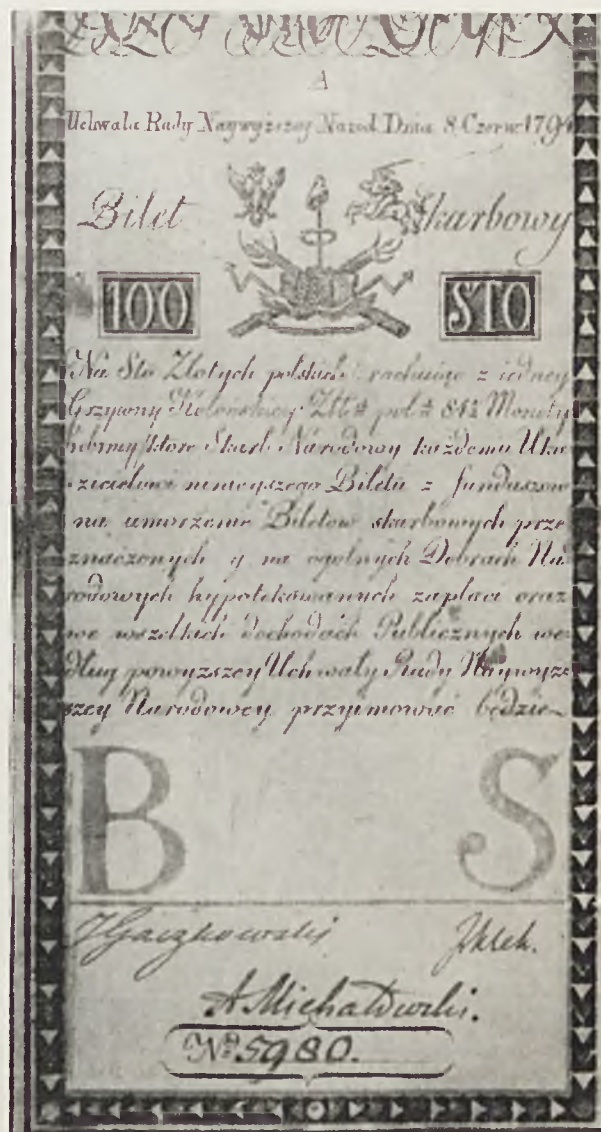 A
Uchwała Rady Naywyższey Narod. Dnia 8 Czerw: 1794
Bilet Skarbowy
100 STO
Na Sto Złotych polskich rachuiąc z iedney
Grzywny Kolońskiey Zlt: pol: 84½ Monety
Srebrnej, które Skarb Narodowy każdemu Uka
zicielowi ninieyszego Biletu z funduszow
na umorzenie Biletow skarbowych prze
znaczonych y na ogolnych Dobrach Na
rodowych hyppotekowannych zapłaci oraz
we wszelkich dochodach Publicznych we
dług powyższey Uchwały Rady Naywyż
szey Narodowey przyimować będzie
B S
A Michałowski.
Nº 5980.